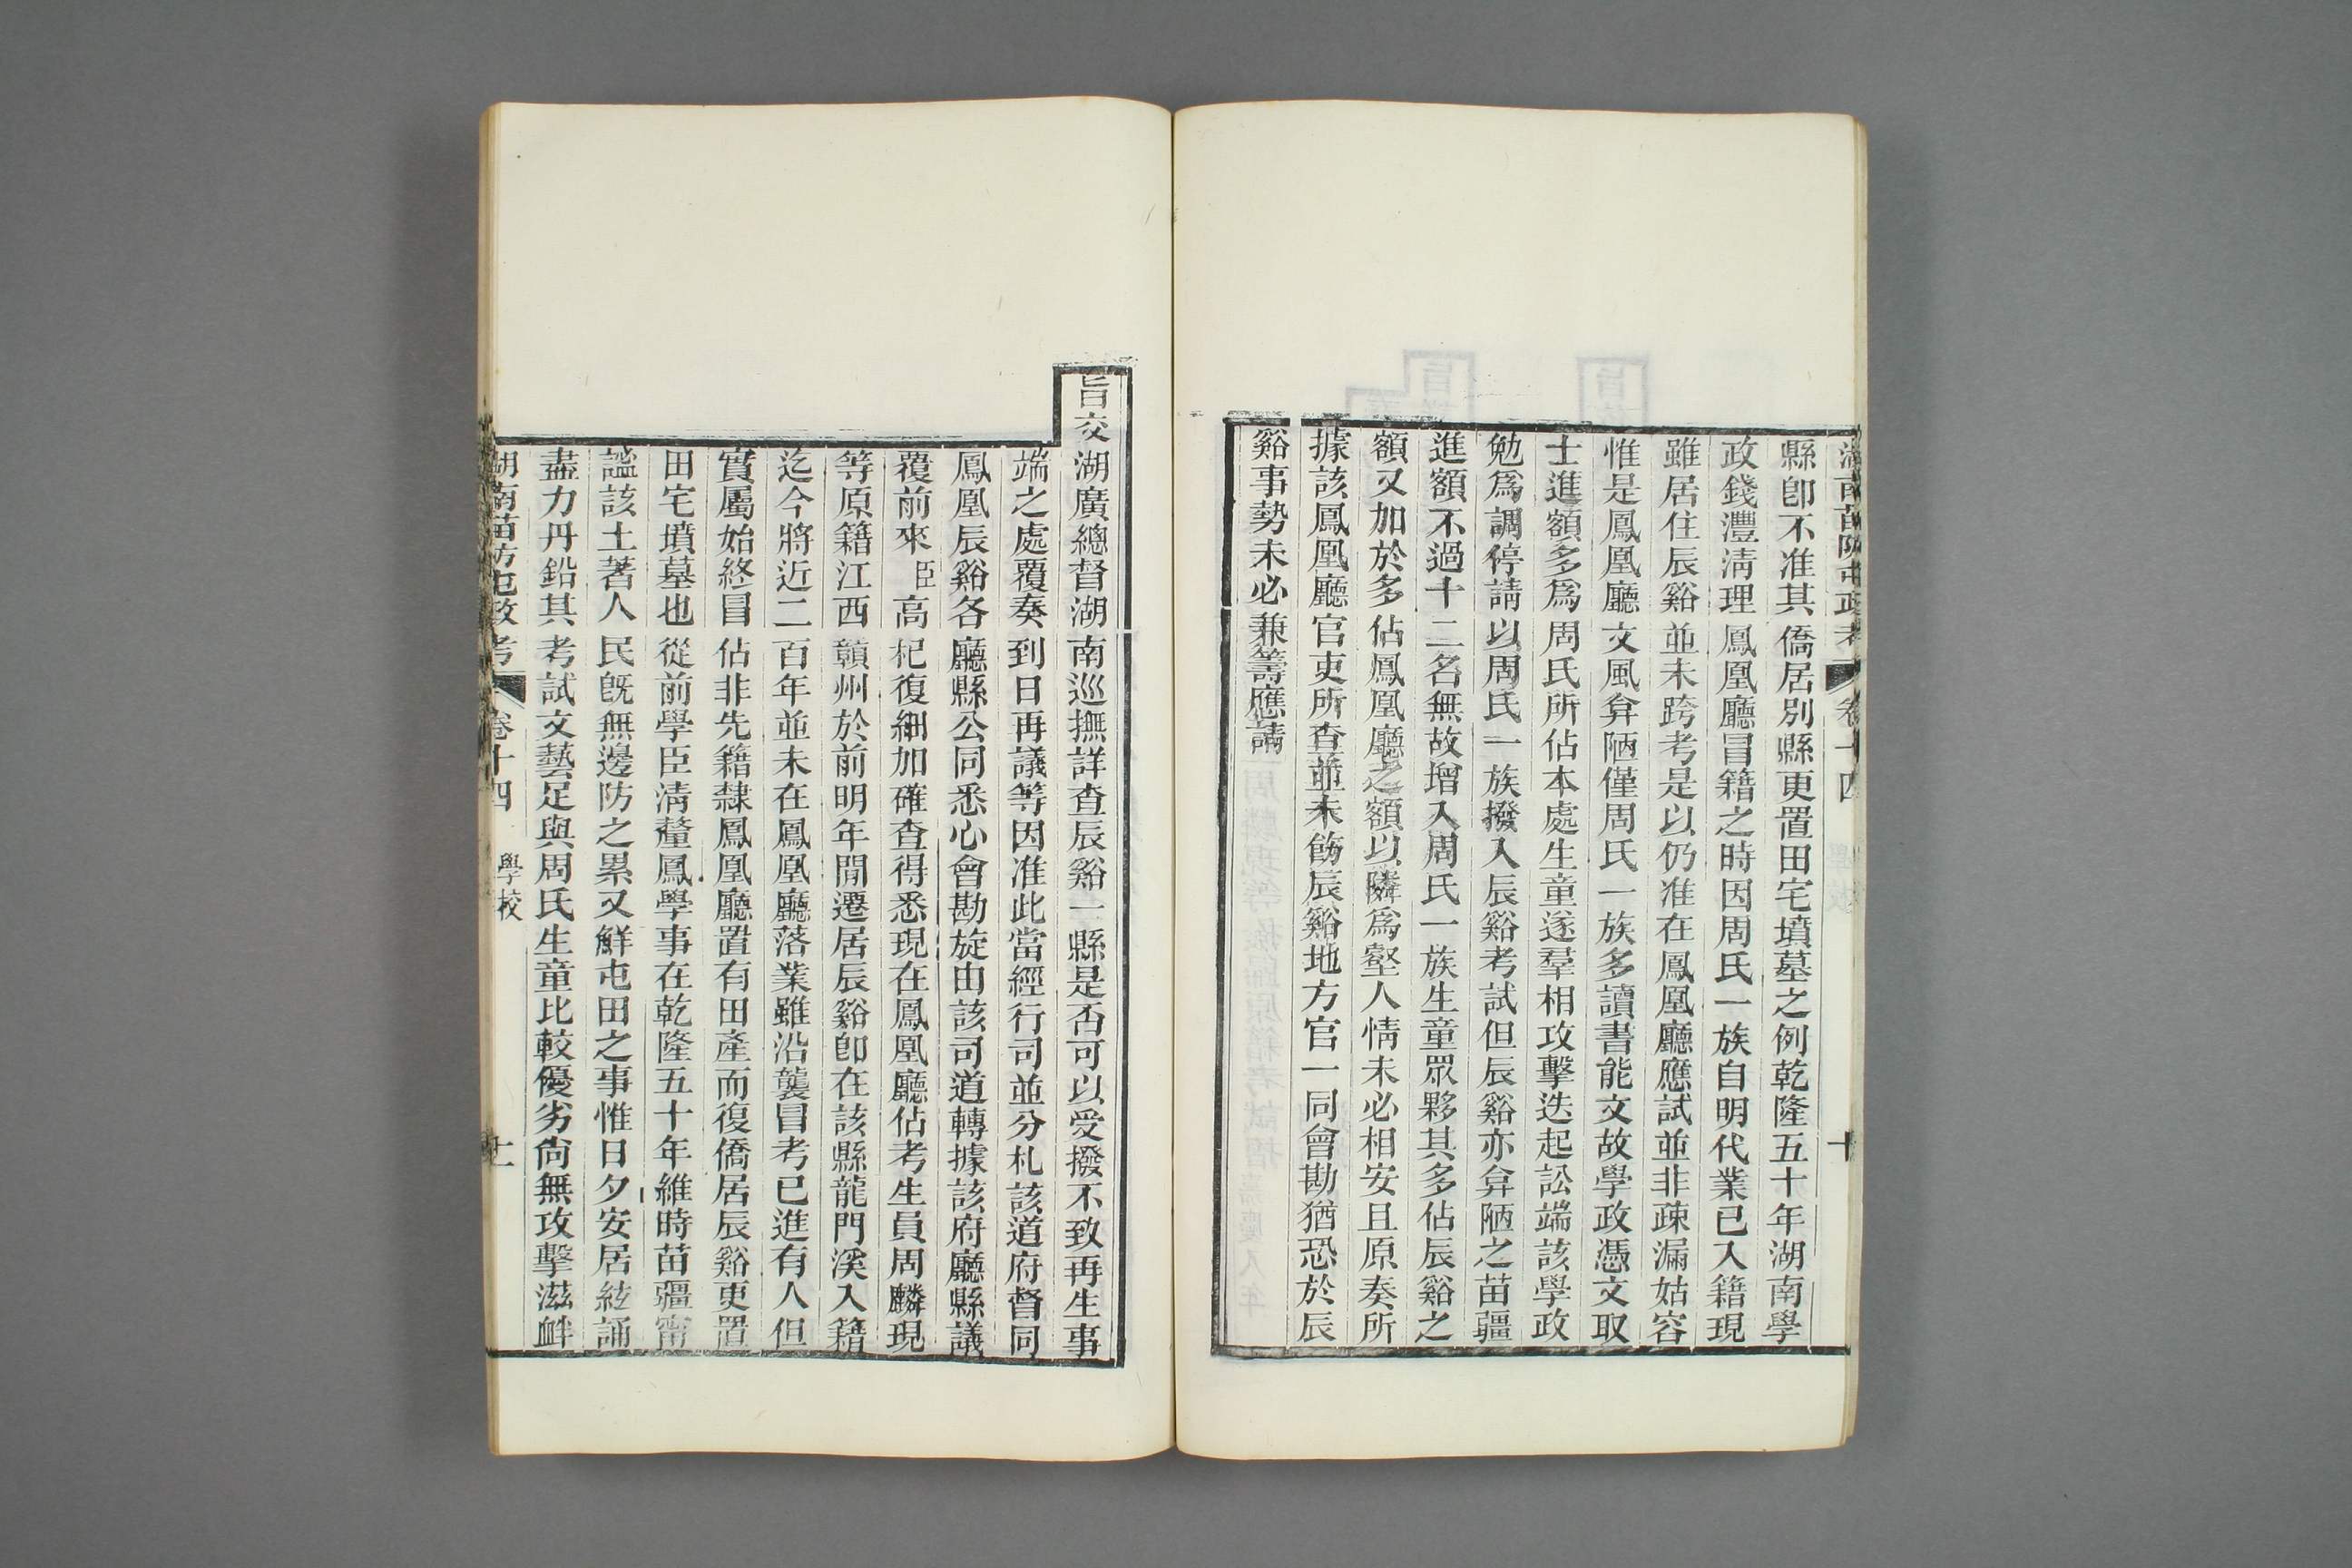 縣卽不准其僑居別縣更置田宅墳墓之例乾隆五十年湖南學
政錢灃淸理鳳凰廳冒籍之時因周氏一族自明代業已入籍現
雖居住辰谿並未跨考是以仍准在鳳凰廳應試並非疎漏姑容
惟是鳳凰廳文風弇陋僅周氏一族多讀書能文故學政憑文取
士進額多爲周氏所佔本處生童遂羣相攻擊迭起訟端該學政
勉爲調停請以周氏一族撥入辰谿考試但辰谿亦弇陋之苗疆
進額不過十二名無故增入周氏一族生童眾夥其多佔辰谿之
額又加於多佔鳳凰廳之額以隣爲壑人情未必相安且原奏所
據該鳳凰廳官吏所查並未飭辰谿地方官一同會勘猶恐於辰
谿事勢未必兼籌應請
旨交湖廣總督湖南巡撫詳查辰谿一縣是否可以受撥不致再生事
端之處覆奏到日再議等因准此當經行司並分札該道府督同
鳳凰辰谿各廳縣公同悉心會勘旋由該司道轉據該府廳縣議
覆前來臣高杞復細加確查得悉現在鳳凰廳佔考生員周麟現
等原籍江西贛州於前明年閒遷居辰谿卽在該縣龍門溪入籍
迄今將近二百年並未在鳳凰廳落業雖沿襲冒考已進有人但
實屬始終冒佔非先籍隸鳳凰廳置有田產而復僑居辰谿更置
田宅墳墓也從前學臣淸釐鳳學事在乾隆五十年維時苗疆甯
謐該土著人民旣無邊防之累又鮮屯田之事惟日夕安居絃誦
盡力丹鉛其考試文藝足與周氏生童比較優劣尙無攻擊滋衅
湖南苗防屯政考 卷十四 學校 十一